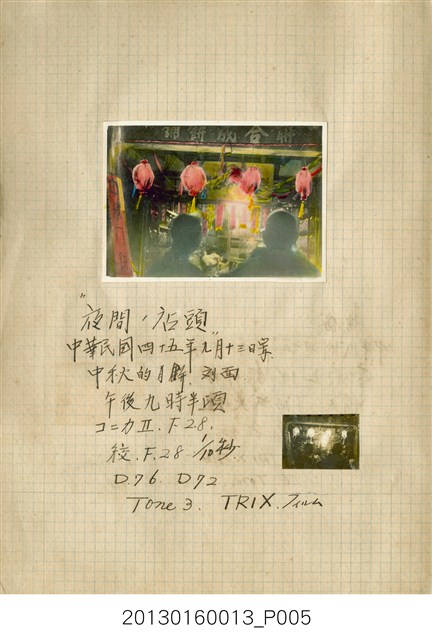 聯合成餅鋪
"夜間ノ店頭"
中華民國四十五年九月十三日
中秋的月餅 対面
午後九時半頃
コニカⅡ. F2.8.
絞. F. 2.8 1/10秒.
D.76 D72
Tone 3. TRIX. フィルム
20130160013_P005